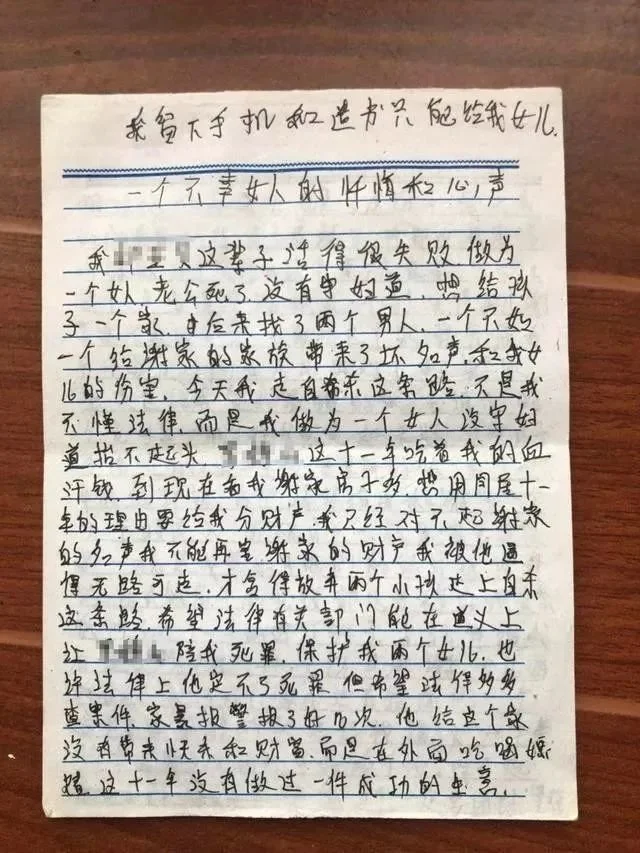 我留下手机和遗书只能给我女儿.
一个不幸女人的忏悔和心声
我 这辈子活得很失败做为
一个女人,老公死了没有守妇道,想给孩
子一个家,由后来找了两个男人,一个不如
一个给谢家的家族带来了坏名声和我女
儿的伤害,今天我走自杀这条路,不是我
不懂法律,而是我做为一个女人没守妇
道抬不起头, 这十一年吃着我的血
汗钱,到现在看我谢家房子多,想用同居十一
年的理由要给我分财产,我已经对不起谢家
的名声我不能再害谢家的财产我被他逼
得无路可走,才舍得放弃两个小孩走上自杀
这条路,希望法律有关部门能在道义上
让 陪我死罪,保护我两个女儿,也
许法律上他定不了死罪但希望法律多多
查案件,家暴报警报了好几次,他给这个家
没有带来快乐和财富,而是在外面吃喝嫖
赌,这十一年没有做过一件成功的生意.